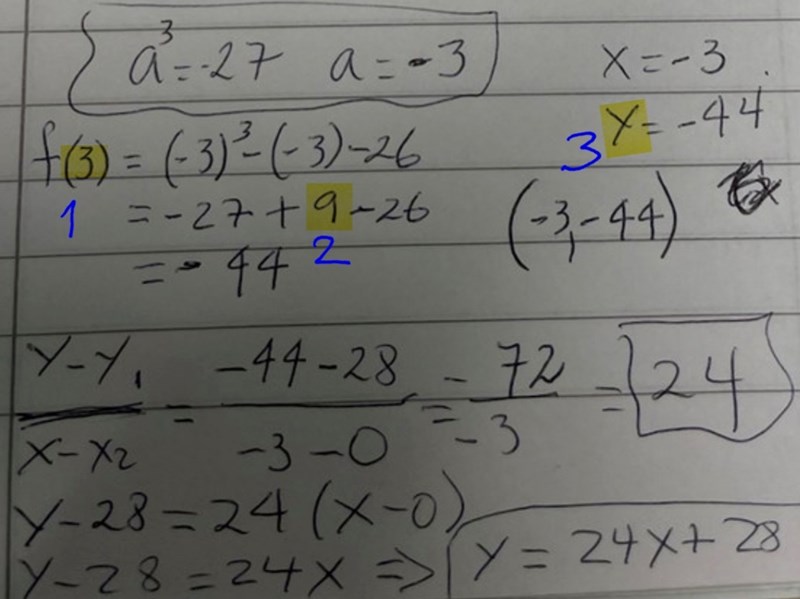 a³=-27 a=-3
x=-3
f(3) = (-3)³-(-3)-26
3 y=-44
1 = -27+9-26
2
(-3,-44)
=-44
y-y₁ / x-x₂ = -44-28 / -3-0 = -72 / -3 = 24
y-28=24(x-0)
y-28=24x => y=24x+28